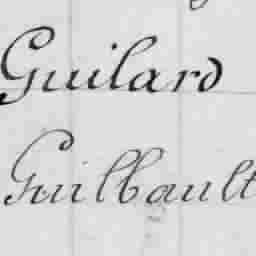 Guilard
Guilbault